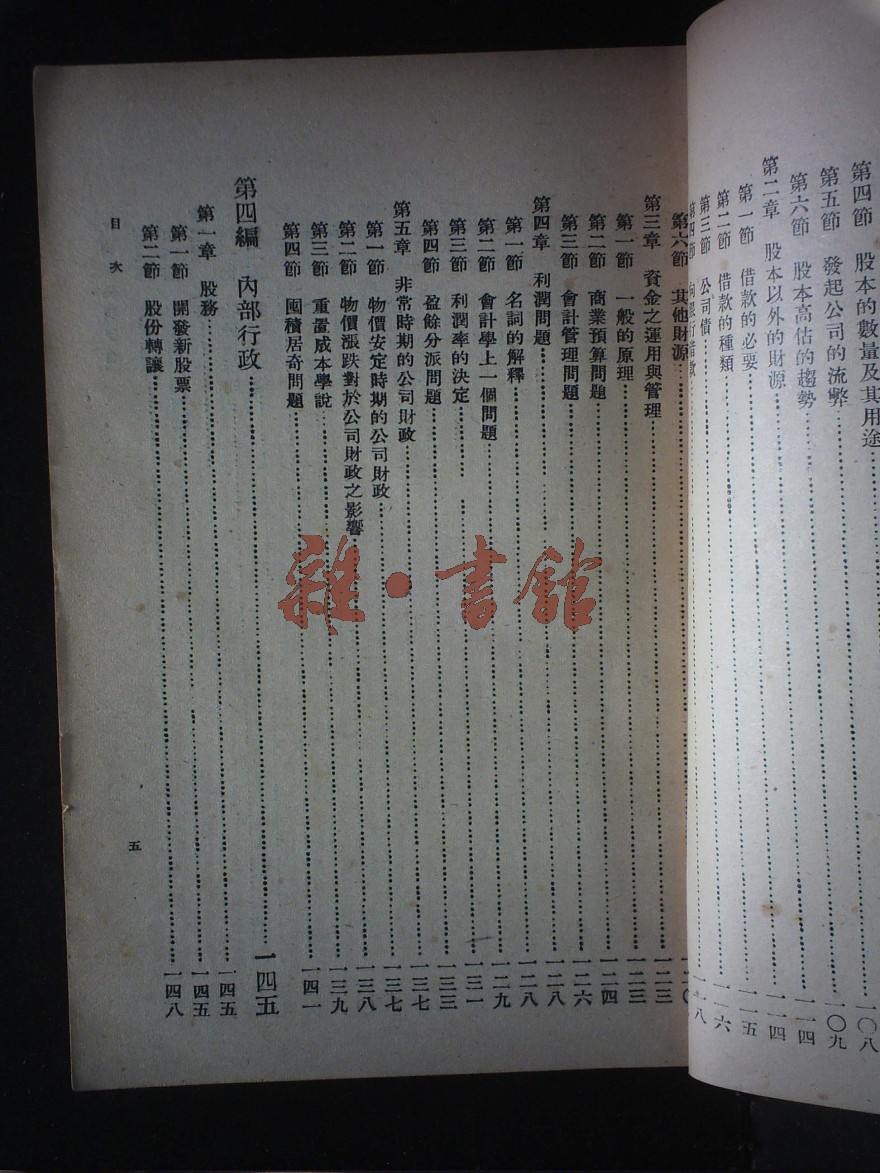 第四節 股本的數量及其用途……一〇八
第五節 發起公司的流弊……一〇九
第六節 股本高估的趨勢……一一四
第二章 股本以外的財源……一一四
第一節 借款的必要……一一五
第二節 借款的種類……一一六
第三節 公司債……一一八
第四節 向銀行借款
第六節 其他財源……一二〇
第三章 資金之運用與管理……一二三
第一節 一般的原理……一二三
第二節 商業預算問題……一二四
第三節 會計管理問題……一二六
第四章 利潤問題……一二八
第一節 名詞的解釋……一二八
第二節 會計學上一個問題……一二九
第三節 利潤率的決定……一三一
第四節 盈餘分派問題……一三三
第五章 非常時期的公司財政……一三七
第一節 物價安定時期的公司財政……一三七
第二節 物價漲跌對於公司財政之影響……一三八
第三節 重置成本學說……一三九
第四節 囤積居奇問題……一四一
第四編 內部行政……一四五
第一章 股務……一四五
第一節 開發新股票……一四五
第二節 股份轉讓……一四八
目次
五
雜·書館